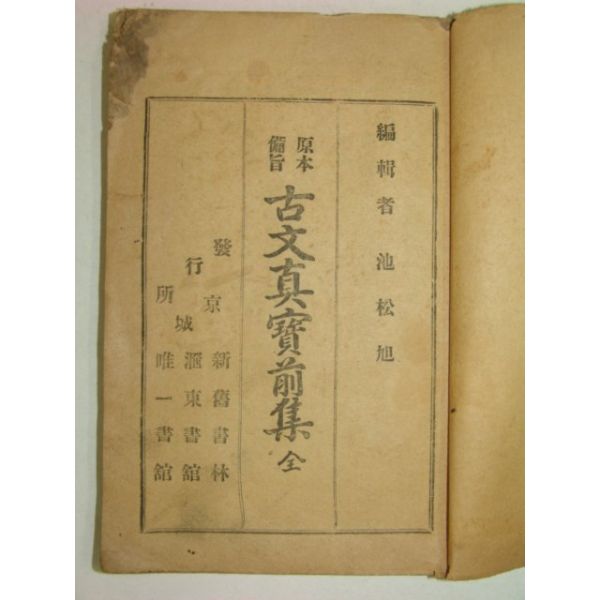 編輯者 池松旭
原本
備旨
古文真寶前集 全
發行所
京城
新舊書林
滙東書舘
唯一書舘